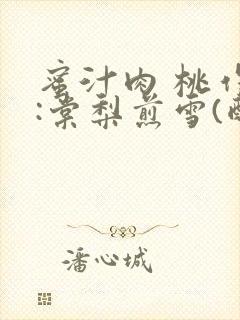 蜜汁肉桃 作
:棠梨煎雪(
潘心城